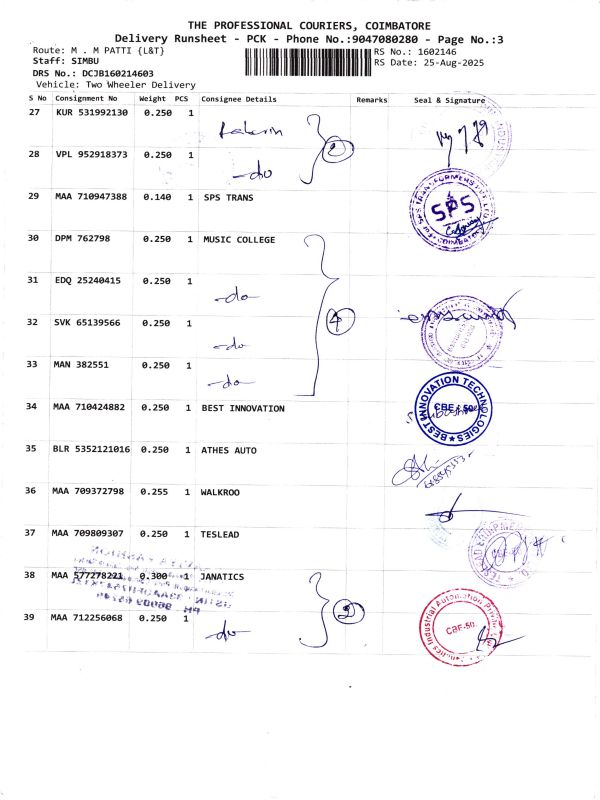 THE PROFESSIONAL COURIERS, COIMBATORE
Delivery Runsheet - PCK - Phone No.:9047080280 - Page No.:3
Route: M . M PATTI {L&T}
RS No.: 1602146
Staff: SIMBU
RS Date: 25-Aug-2025
DRS No.: DCJB160214603
Vehicle: Two Wheeler Delivery
S No Consignment No Weight PCS Consignee Details Remarks Seal & Signature
27 KUR 531992130 0.250 1
28 VPL 952918373 0.250 1 -do 2
29 MAA 710947388 0.140 1 SPS TRANS SPS
30 DPM 762798 0.250 1 MUSIC COLLEGE
31 EDQ 25240415 0.250 1 -do-
32 SVK 65139566 0.250 1 -do 4
33 MAN 382551 0.250 1 -do-
34 MAA 710424882 0.250 1 BEST INNOVATION BEST INNOVATION TECHNOLOGIES CBE-50
35 BLR 5352121016 0.250 1 ATHES AUTO
36 MAA 709372798 0.255 1 WALKROO
37 MAA 709809307 0.250 1 TESLEAD
38 MAA 577278221 0.300 1 JANATICS 2
39 MAA 712256068 0.250 1 -do- CBE-50.